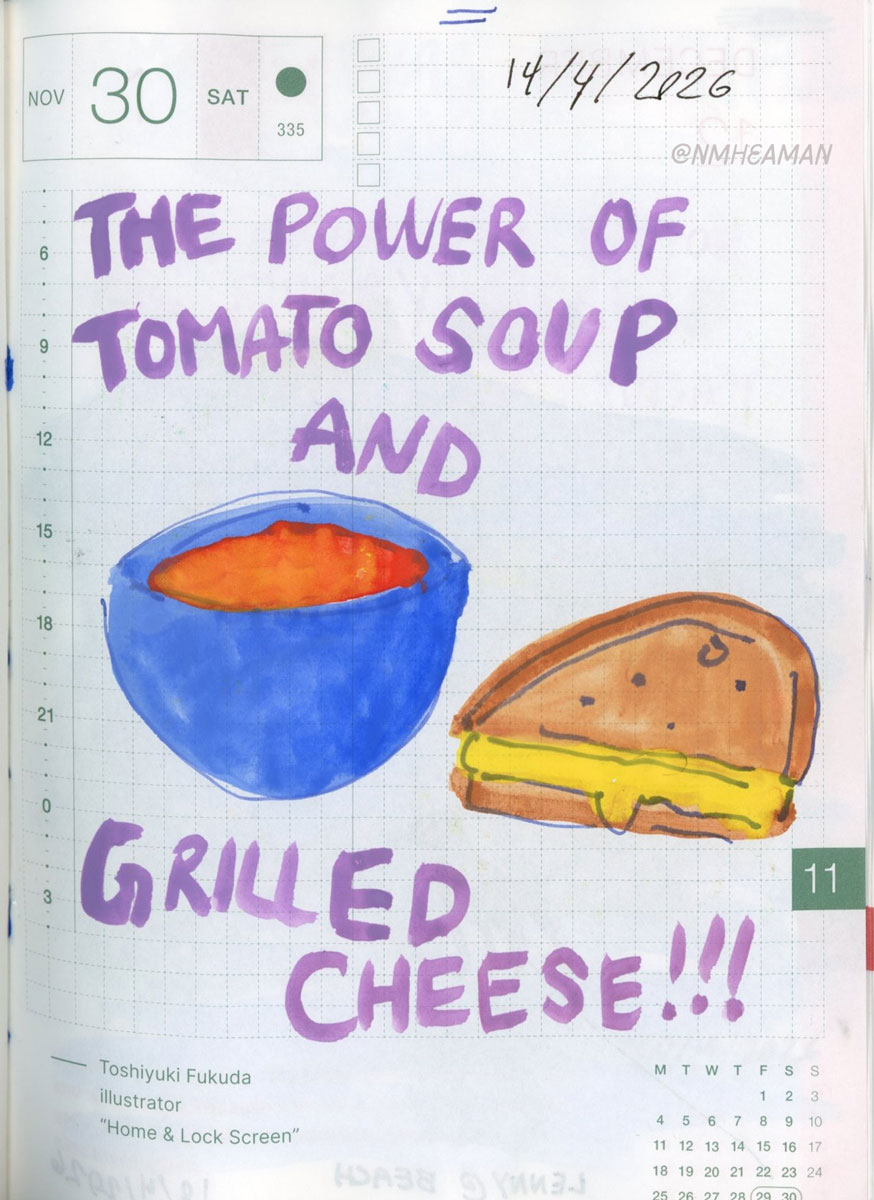 NOV 30 SAT
335
14/4/2026
@NMHEAMAN
THE POWER OF
TOMATO SOUP
AND
GRILLED
CHEESE!!!
6
9
12
15
18
21
0
3
11
Toshiyuki Fukuda
illustrator
“Home & Lock Screen”
M T W T F S S
1 2 3
4 5 6 7 8 9 10
11 12 13 14 15 16 17
18 19 20 21 22 23 24
25 26 27 28 29 30
LENNY @ BEACH